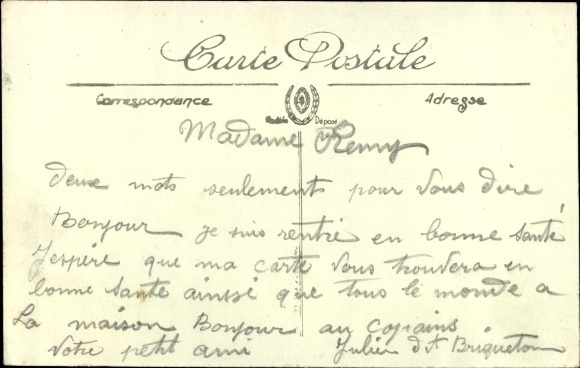 Carte Postale
Correspondance Adresse
Modèle Déposé
Madame Remy
deux mots seulement pour vous dire
Bonjour je suis rentré en bonne santé
J'espère que ma carte vous trouvera en
bonne santé ainssi que tous le monde a
La maison Bonjour au copains
votre petit ami Julien